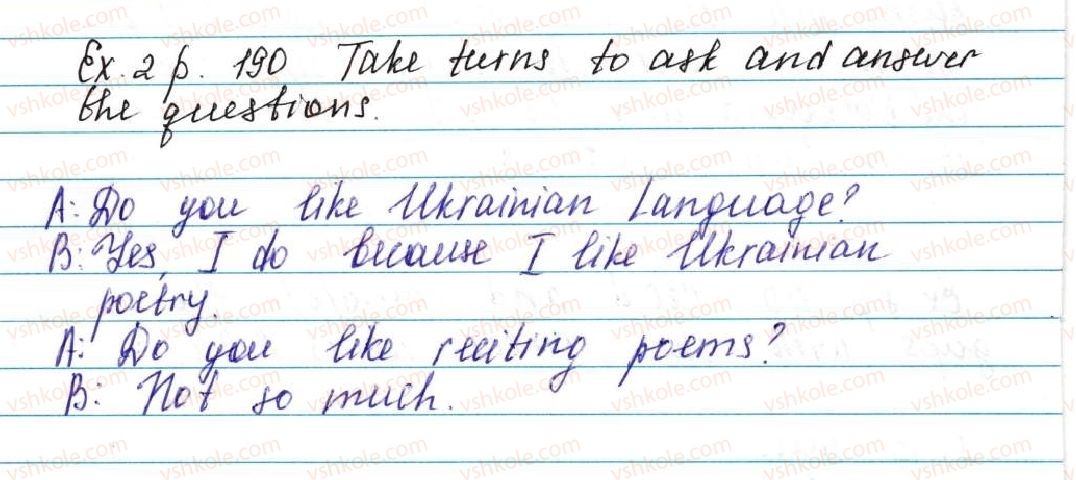 Ex. 2 p. 190 Take turns to ask and answer
the questions.
A: Do you like Ukrainian Language?
B: Yes, I do because I like Ukrainian
poetry.
A: Do you like reciting poems?
B: Not so much.